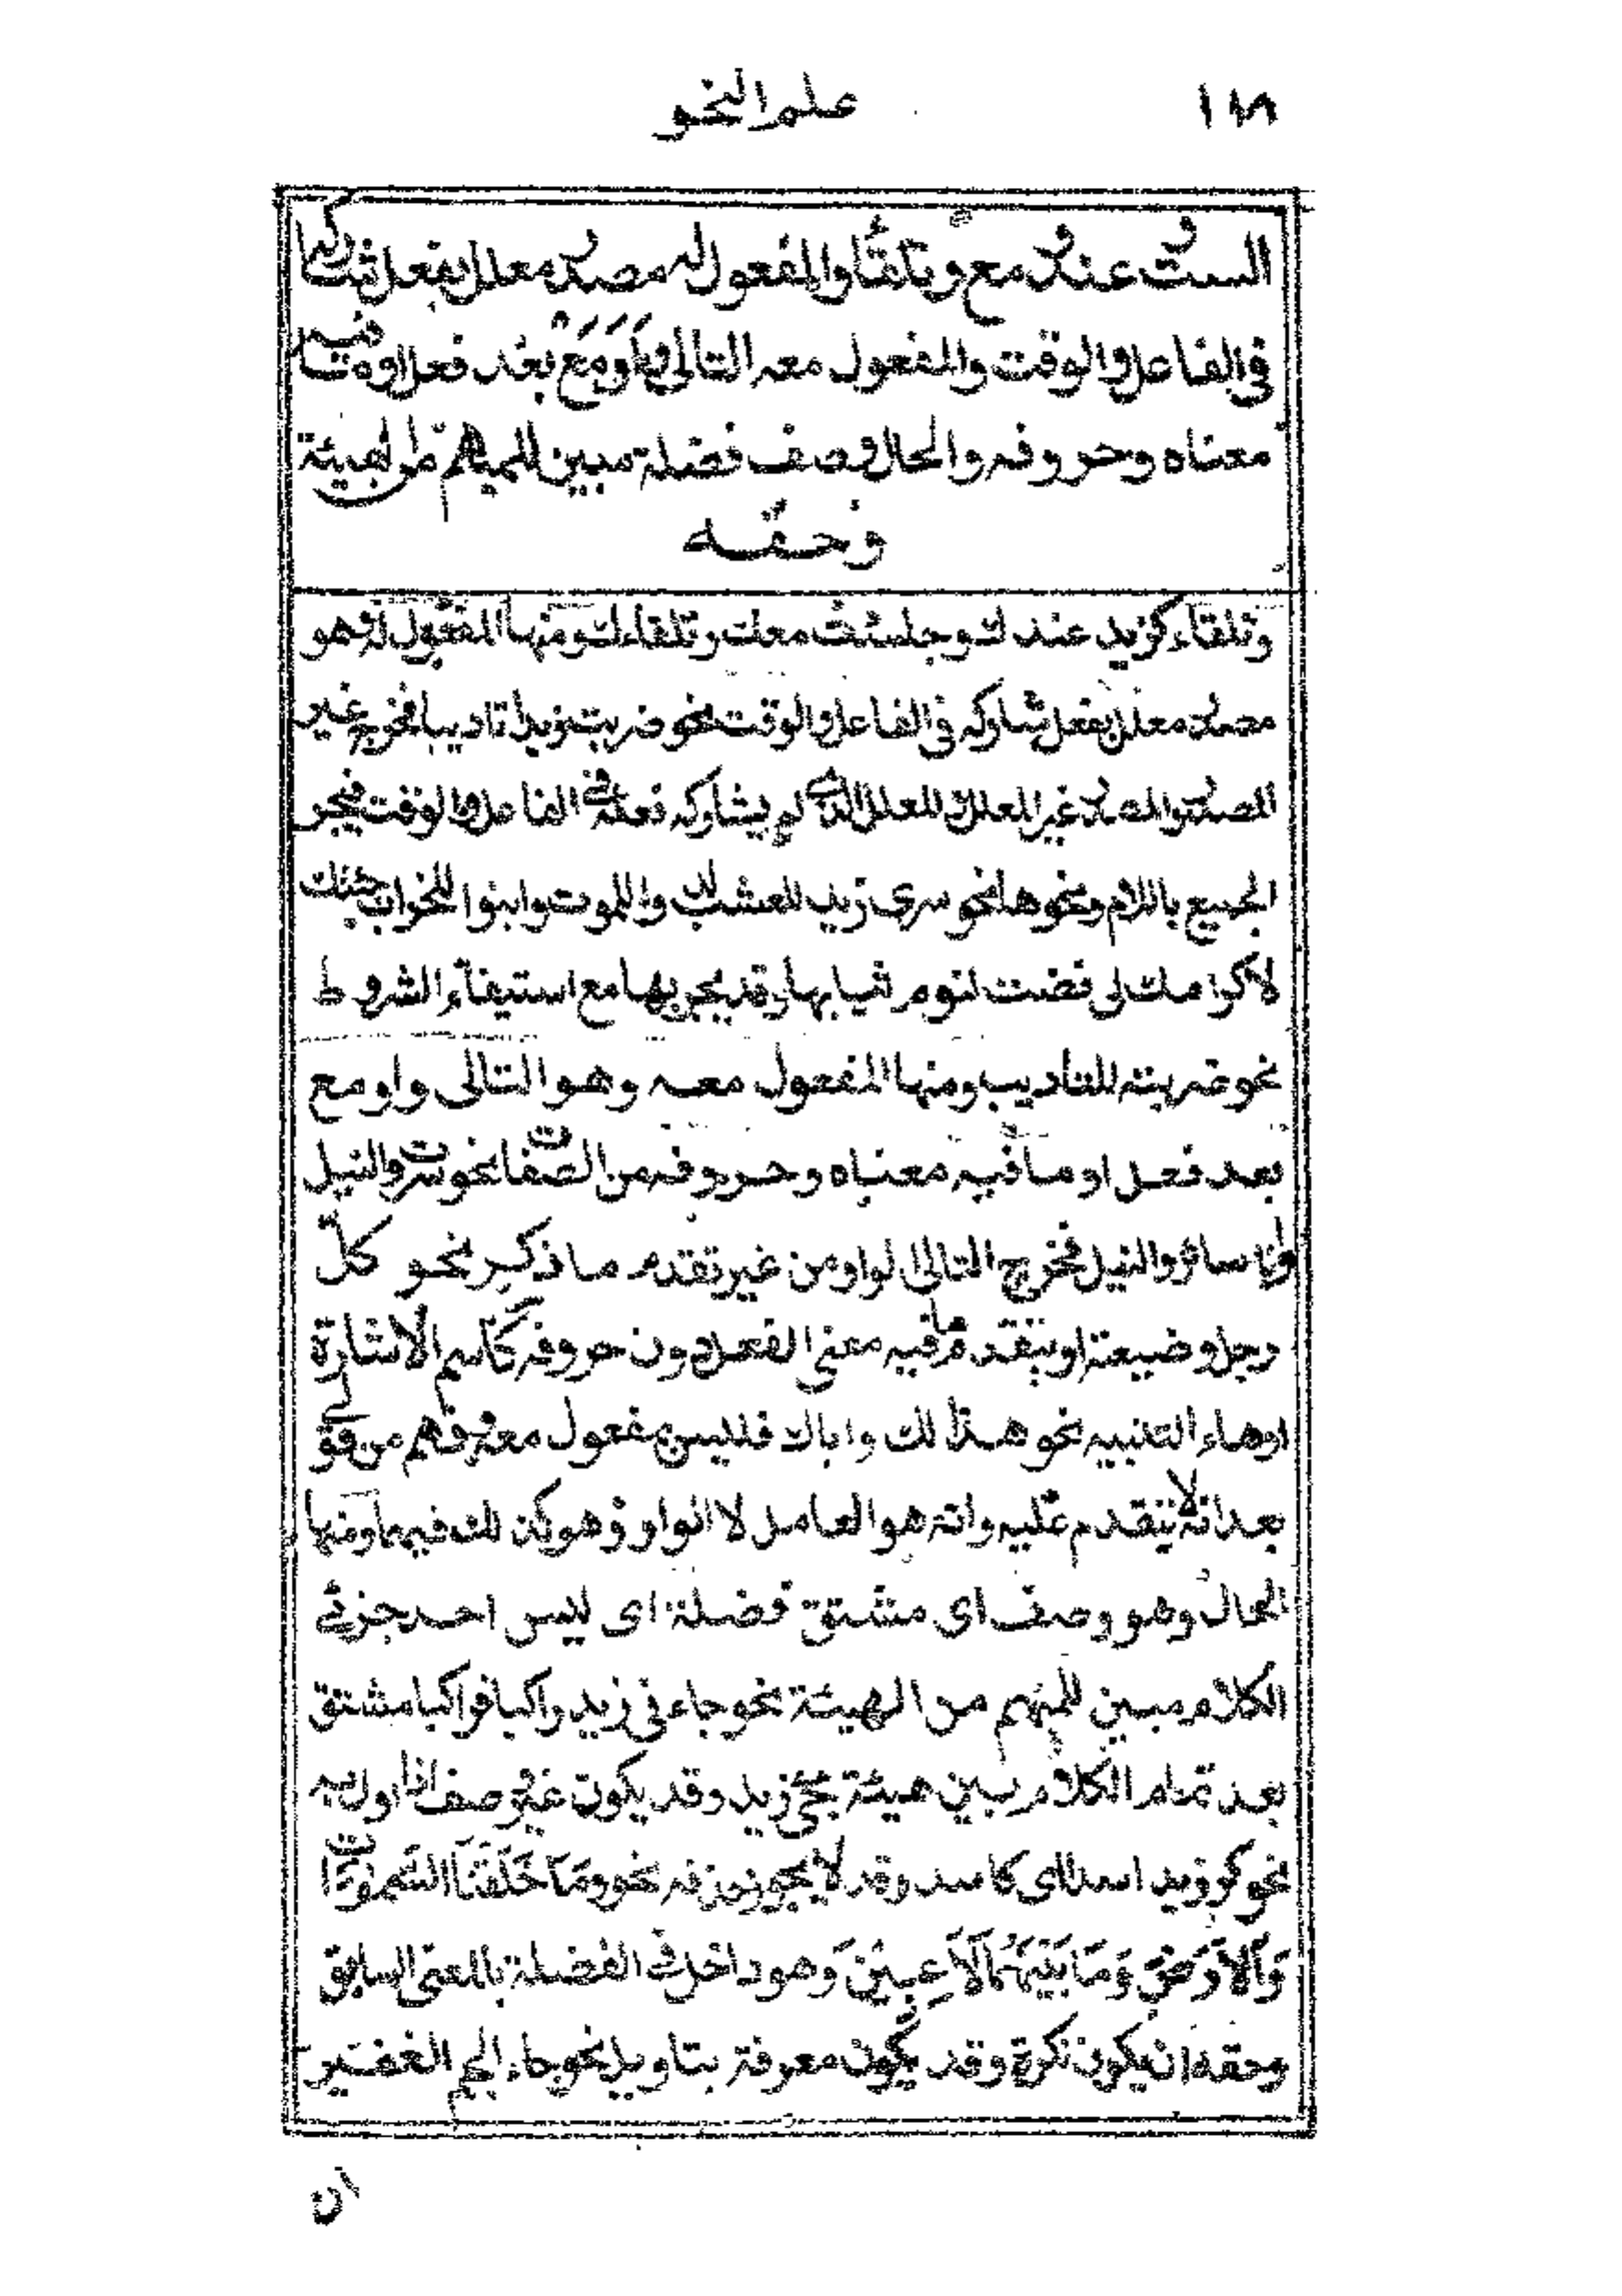 ١١٨ علم النحو
الست وعند ومع وتلقاء والمفعول له مصدر معلل بفعل شاركه
في الفاعل والوقت والمفعول معه التالي واو مع بعد فعل او ما فيه
معناه وحروفه والحال وصف فضلة مبين للمبهم من الهيئة
وحقه
وتلقاء كزيد عندك وجلست معك وتلقاءك ومنها المفعول له وهو
مصدر معلل بفعل شاركه في الفاعل والوقت نحو ضربت زيدا تاديبا فخرج غير
المصدر والمصدر غير المعلل والمعلل الذي لم يشاركه فعله في الفاعل والوقت فيجر
الجميع باللام ونحوها نحو سرى زيد للعشب لدوا للموت وابنوا للخراب جئتك
لاكرامك لي فضت لنوم ثيابها وقد يجر بها مع استيفاء الشروط
نحو ضربته للتاديب ومنها المفعول معه وهو التالي واو مع
بعد فعل او ما فيه معناه وحروفه من الصفات نحو سرت والنيل
وانا سائر والنيل فخرج التالي الواو من غير تقدم ما ذكر نحو كل
رجل وضيعته او بتقدم ما فيه معنى الفعل دون حروفه كاسم الاشارة
اوهاء التنبيه نحو هذا لك واباك فليس بمفعول معه وفهم من قولي
بعد انه لا يتقدم عليه وانه هو العامل لا الواو وهو كذلك فيهما ومنها
الحال وهو وصف اى مشتق فضلة اى ليس احد جزئي
الكلام مبين للمبهم من الهيئة نحو جاءني زيد راكبا فراكبا مشتق
بعد تمام الكلام مبين هيئة مجئ زيد وقد يكون غير وصف اذا اول به
نحو كر زيد اسدا اى كاسد وقد لا يجوز حذفه نحو وَمَا خَلَقْنَا السَّمٰوٰتِ
وَالْاَرْضَ وَمَا بَيْنَهُمَا لَاعِبِيْنَ وهو داخل في الفضلة بالمعنى السابق
وحقه ان يكون نكرة وقد يكون معرفة بتاويل نحو جاء الجم الغفير
ان